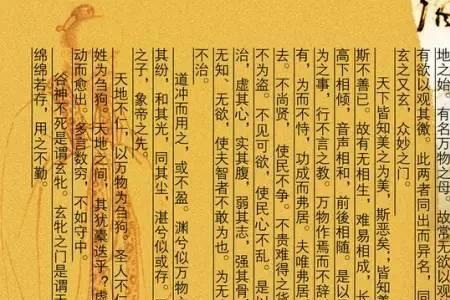 地之始。有名万物之母。故常无欲以观
有欲以观其徼。此两者同出而异名，
玄之又玄，众妙之门。
天下皆知美之为美，斯恶矣；皆知
斯不善已。故有无相生，难易相成，长
高下相倾，音声相和，前後相随。是以
为之事，行不言之教。万物作焉而不辞
有，为而不恃，功成而弗居。夫唯弗居
去。不尚贤，使民不争。不贵难得之货
不为盗。不见可欲，使民心不乱。是以
治，虚其心，实其腹，弱其志，强其骨
无知、无欲，使夫智者不敢为也。为无
不治。
道冲而用之，或不盈。渊兮似万物
其纷，和其光，同其尘，湛兮似或存。
之子，象帝之先。
天地不仁，以万物为刍狗。圣人不仁
姓为刍狗。天地之间，其犹橐迭乎？虚
动而愈出。多言数穷，不如守中。
谷神不死是谓玄牝。玄牝之门是谓天
绵绵若存，用之不勤。